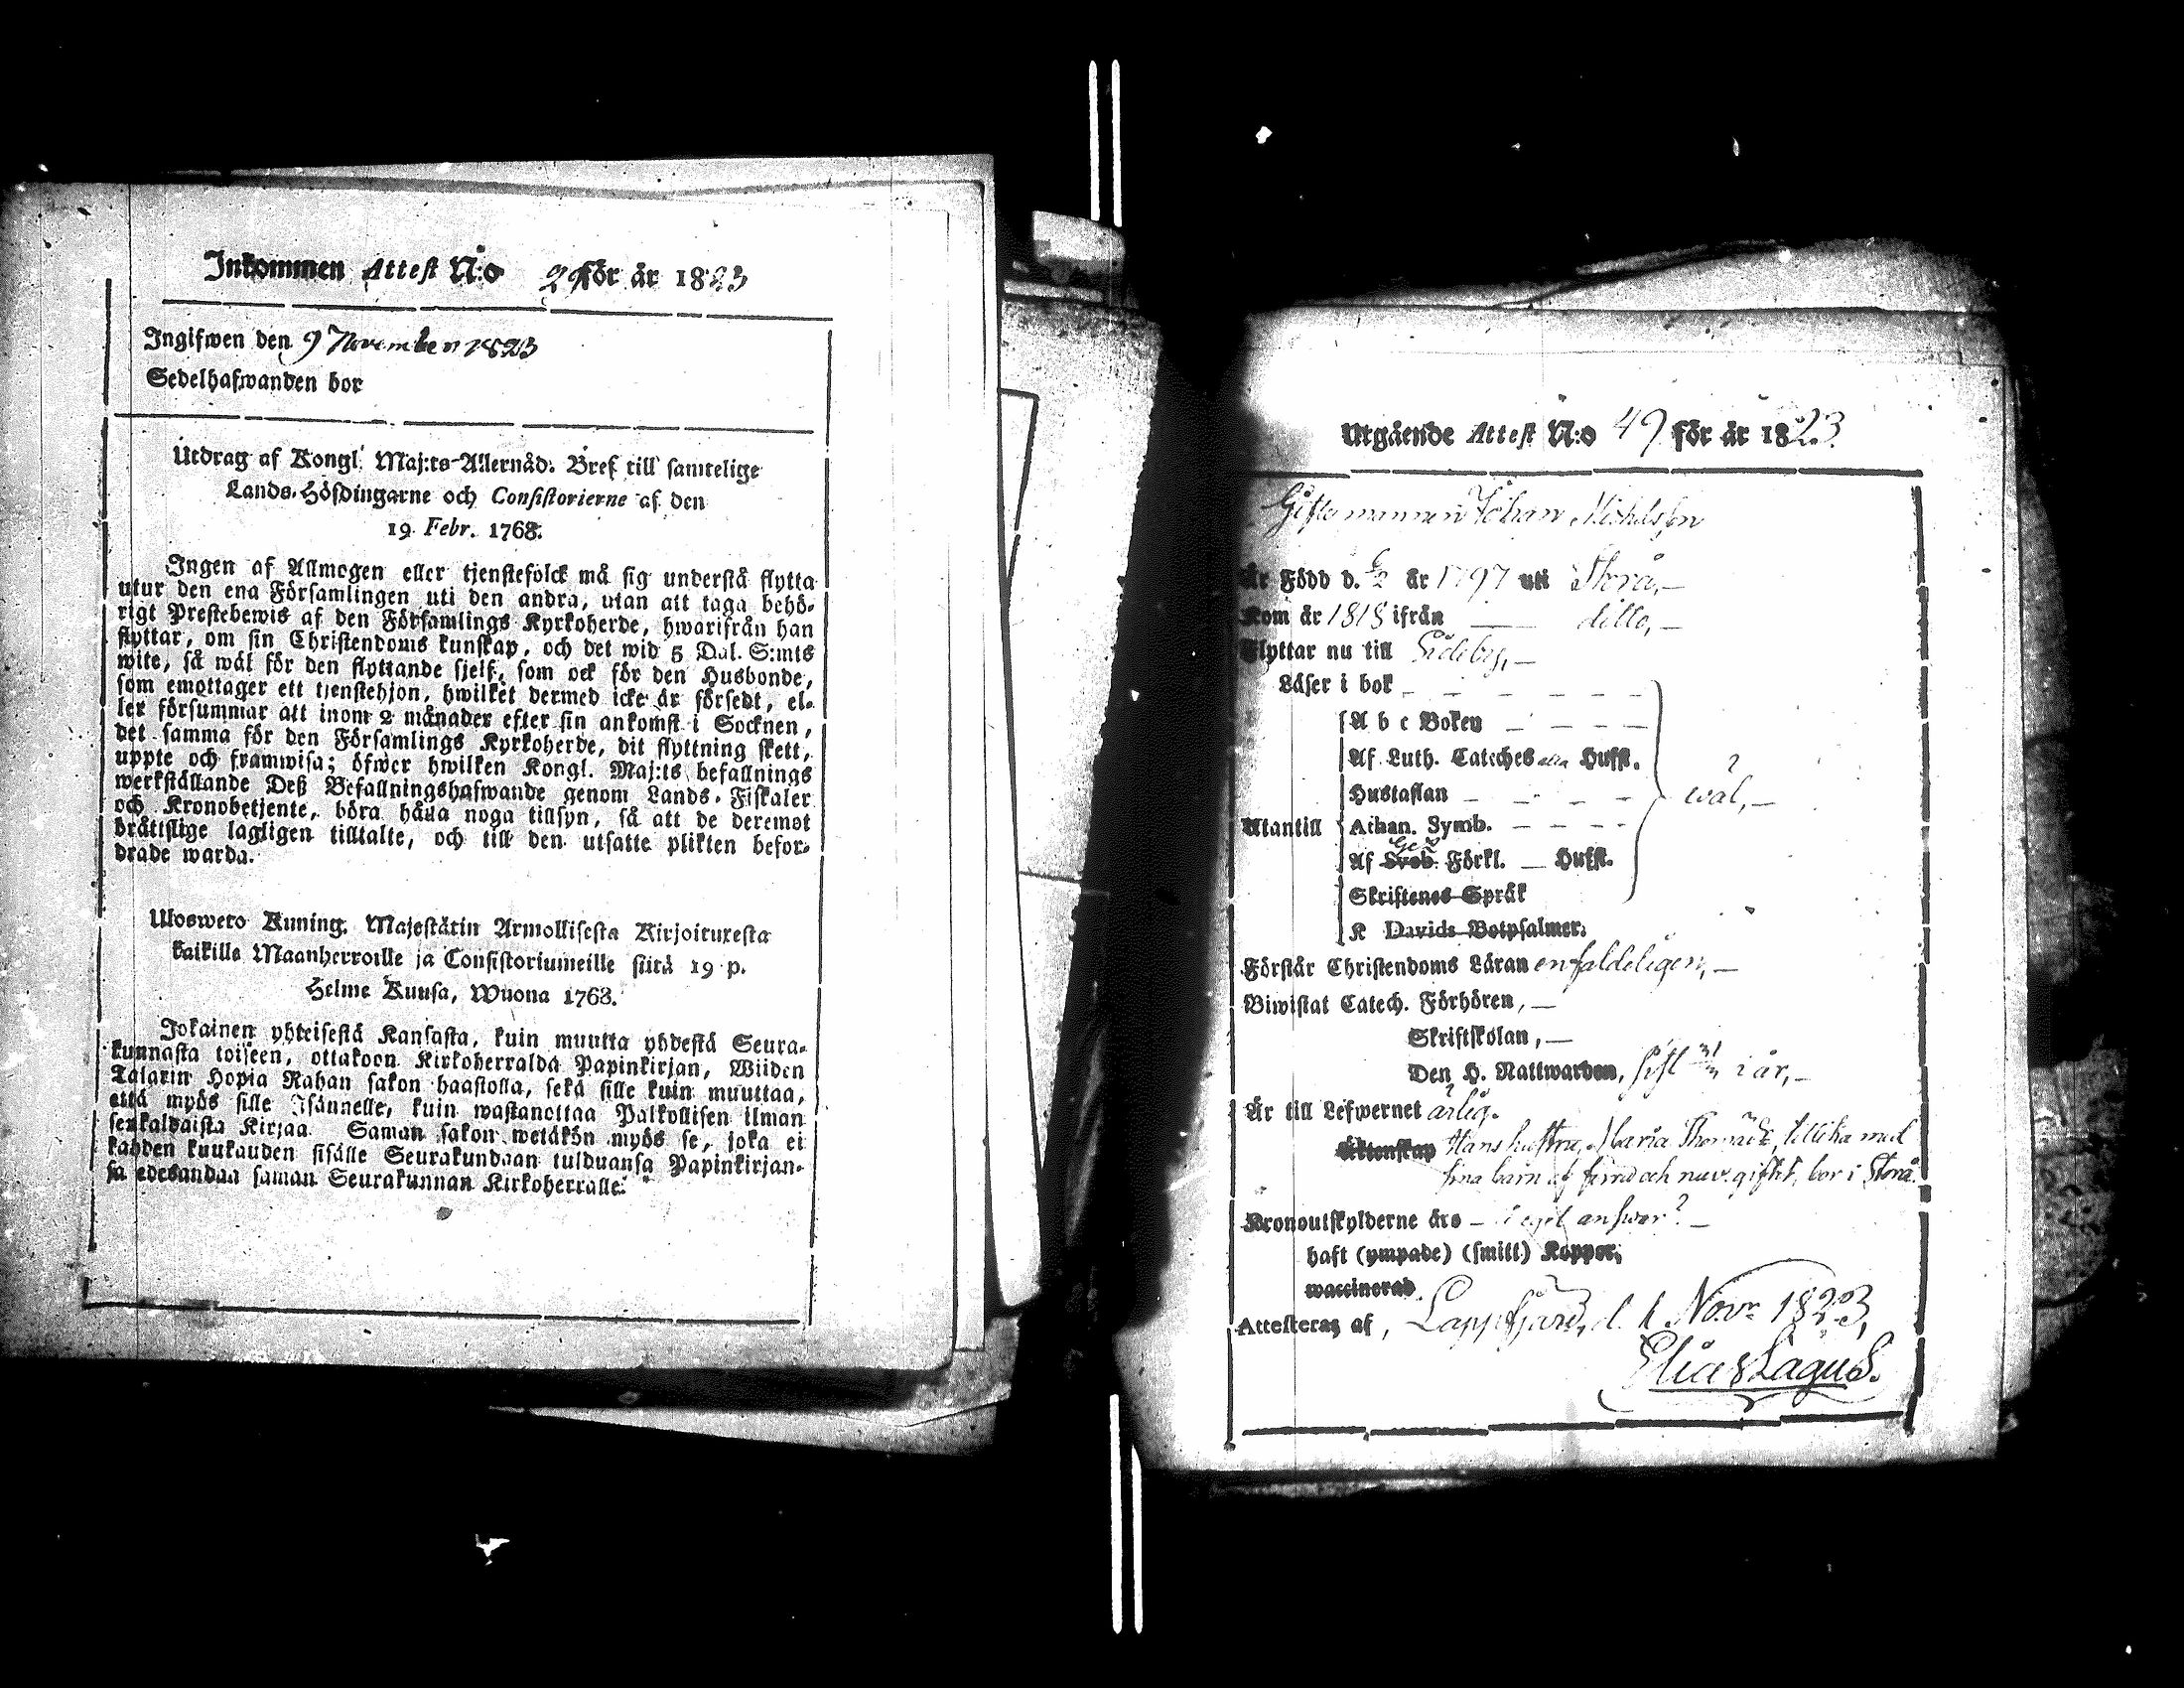 Inkommen Attest N:o 29 för år 1823
Ingifwen den 9 November 1823
Sedelhafwanden bor
Utdrag af Kongl. Maj:ts Allernåd. Bref till samtelige
Lands-Höfdingarne och Consistorierne af den
19 Febr. 1768.
Ingen af Allmogen eller tjenstefolck må sig understå flytta
utur den ena Församlingen uti den andra, utan att taga behö-
rigt Prestebewis af den Församlings Kyrkoherde, hwarifrån han
flyttar, om sin Christendoms kunskap, och det wid 5 Dal. S:mts
wite, så wäl för den flyttande sjelf, som ock för den Husbonde,
som emottager ett tjenstehjon, hwilket dermed icke är försedt, el-
ler försummar att inom 2 månader efter sin ankomst i Socknen,
det samma för den Församlings Kyrkoherde, dit flyttning skett,
uppte och framwisa; öfwer hwilken Kongl. Maj:ts befallnings
werkställande Deß Befallningshafwande genom Lands-Fiskaler
och Kronobetjente, böra hålla noga tillsyn, så att de deremot
bråttslige lagligen tilltalte, och till den utsatte plikten befor-
drade warda.
Ulosweto Kuning. Majestätin Armollisesta Kirjoituxesta
kaikille Maanherroille ja Consistoriumeille siitä 19 p.
Helme Kuusa, Wuona 1768.
Jokainen yhteisestä Kansasta, kuin muutta yhdestä Seura-
kunnasta toiseen, ottakoon Kirkoherralda Papinkirjan, Wiiden
Talarin Hopia Rahan sakon haastolla, sekä sille kuin muuttaa,
että myös sille Isännelle, kuin wastanottaa Palkollisen ilman
senkaldaista Kirjaa. Saman sakon wetäkön myös se, joka ei
kahden kuukauden sisälle Seurakundaan tulduansa Papinkirjan-
sa edesandaa saman Seurakunnan Kirkoherralle.
Utgående Attest N:o 49 för år 1823
Gifte mannen Johan Michelsson
Är Född d. 6/2 år 1797 uti Storå,–
Kom år 1818 ifrån — ditto,–
Flyttar nu till Sideby,–
Läser i bok
A b c Boken
Af Luth. Cateches Husst.
Hustaflan
wäl,–
Utantill Athan. Symb.
Af Sveb. Förkl. — Husst.
Skriftenes Språk
K Davids Botpsalmer.
Förstår Christendoms Läran enfaldeligen,–
Biwistat Catech. Förhören,—
Skriftskolan,—
Den H. Nattwarden, sist i år,–
Är till Lefwernet ärlig.
Äktenskap Hans hustru, Maria tillika med
sina barn af förra och nuv. gifte, bor i Storå.
Kronoutskylderne äro – i eget answar –
haft (ympade) (smitt) Koppor,
waccinerad
Attesteras af, Lappfjärd, d. 1 Novr 1823,
Elias Lagus.